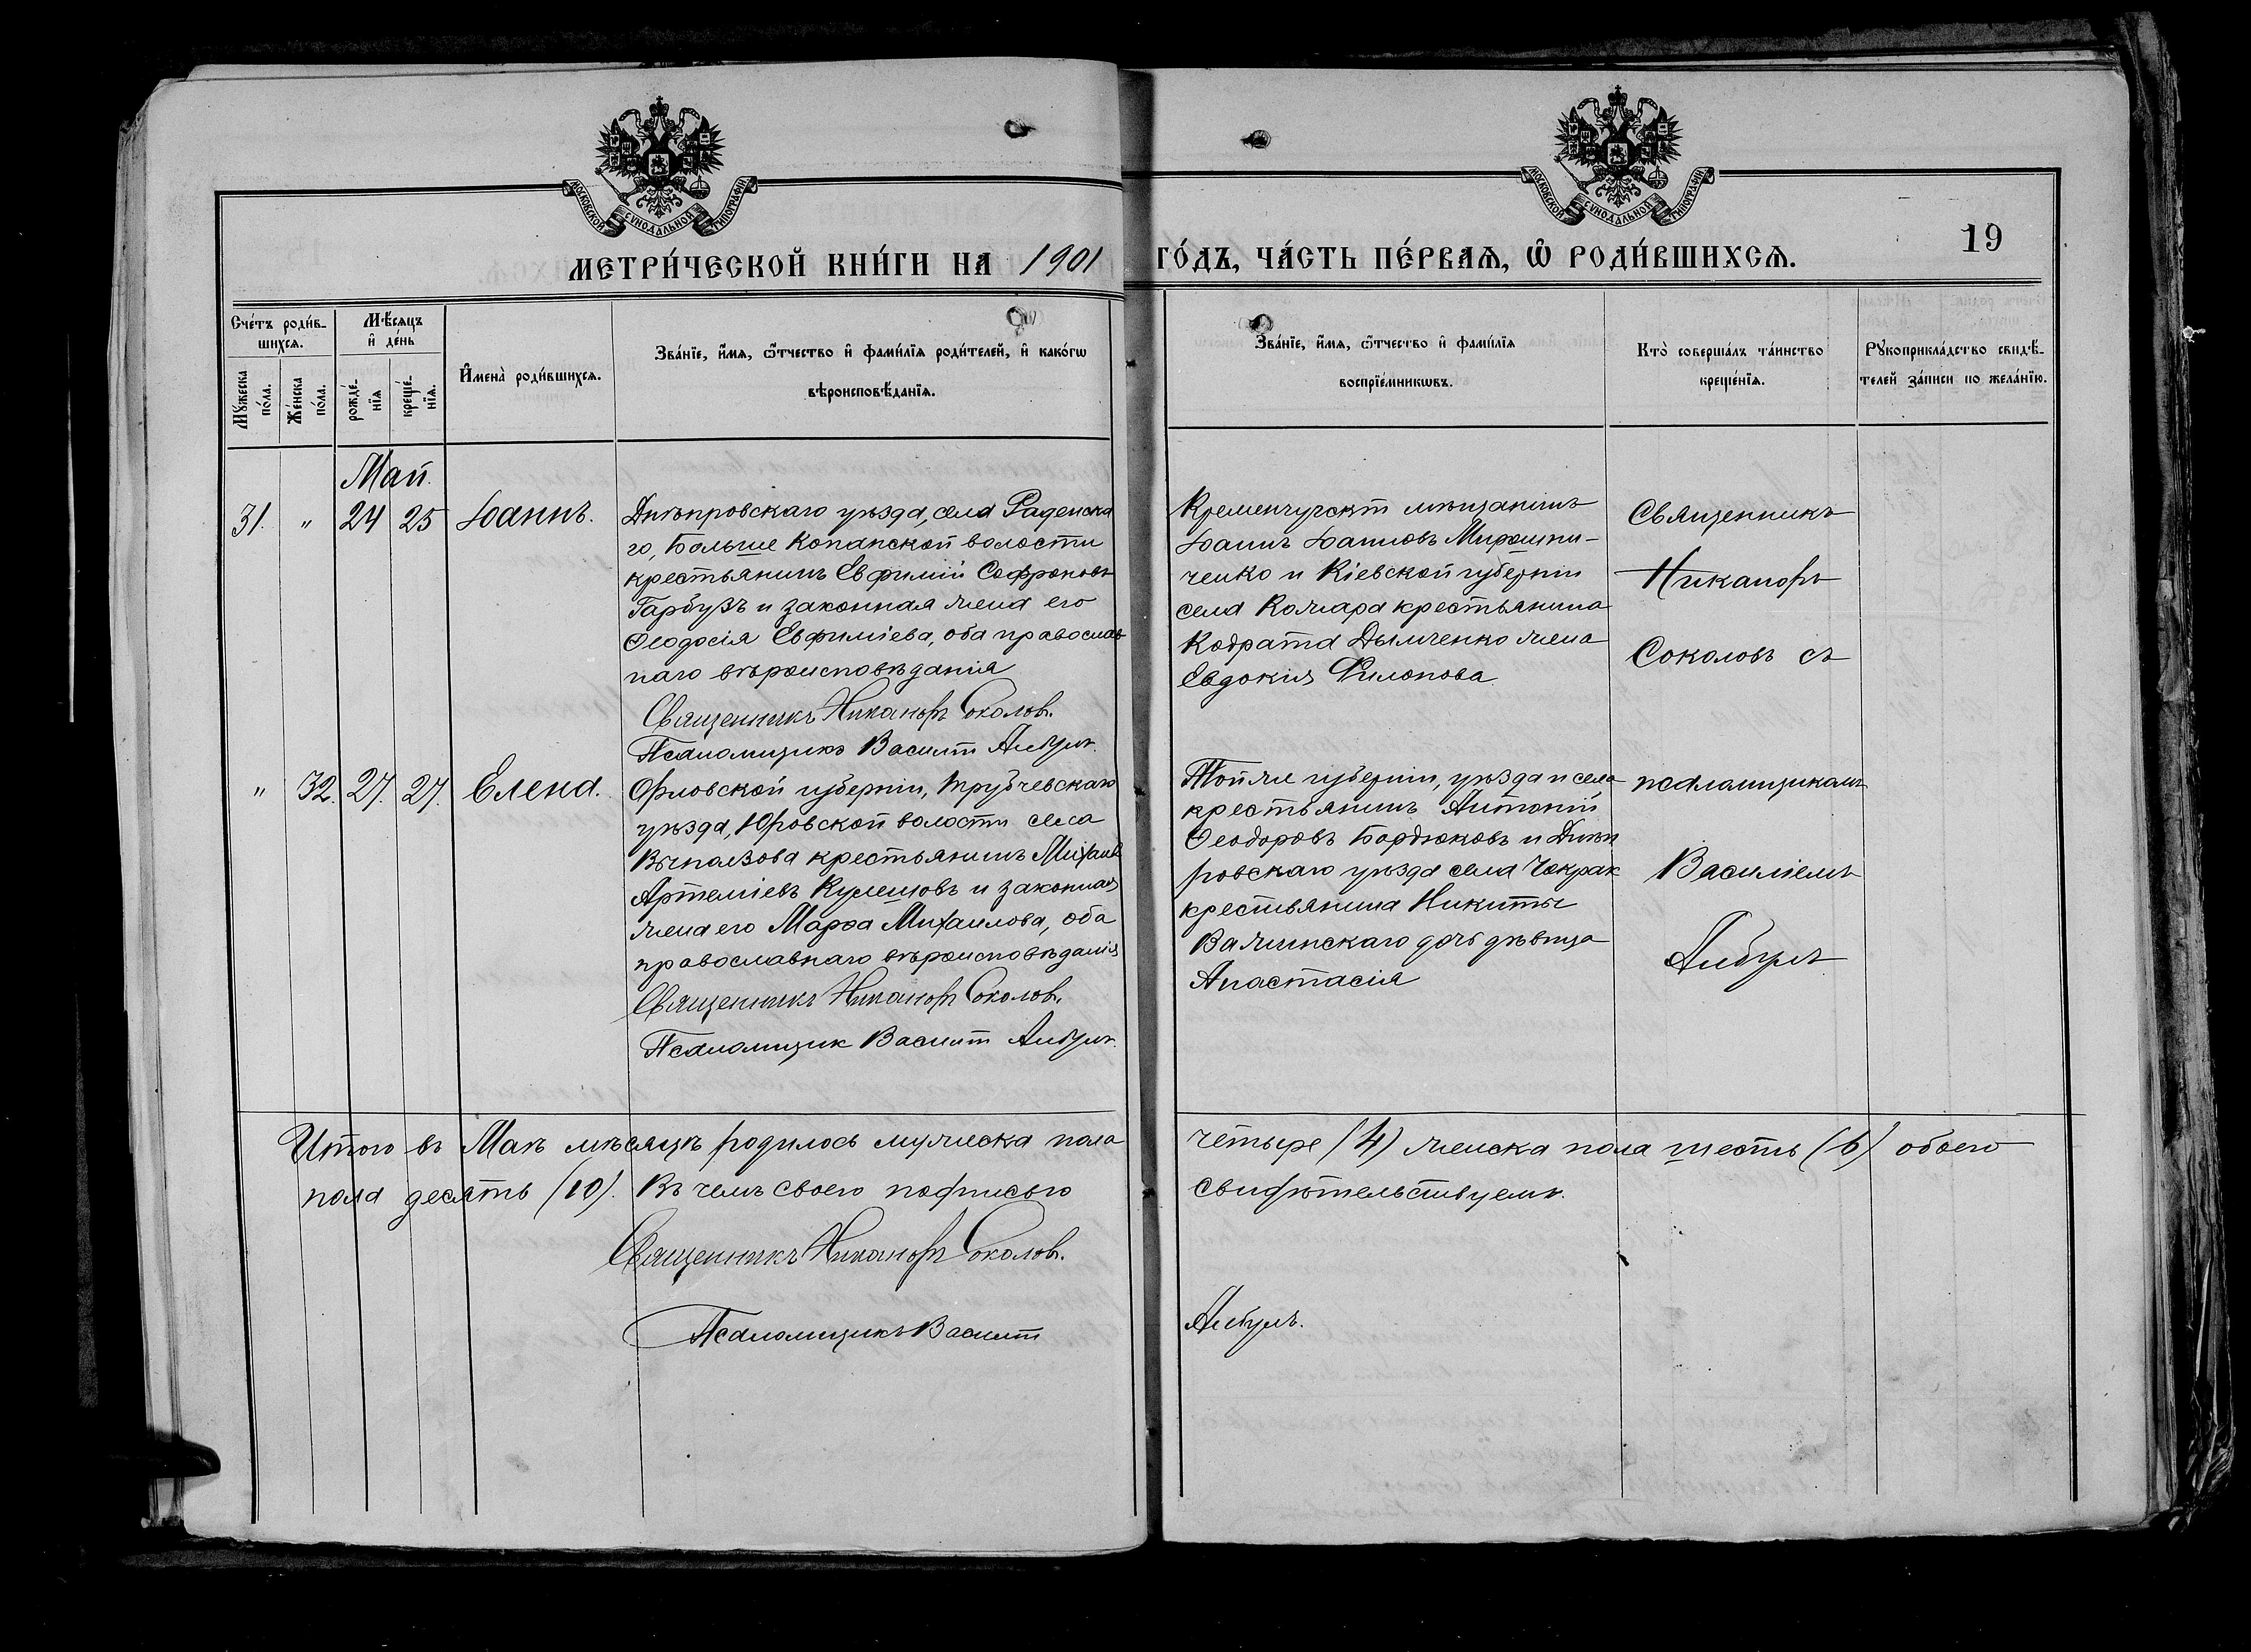 МОСКОВСКОЙ СУНОДАЛЬНОЙ ТИПОГРАФІИ
МОСКОВСКОЙ СУНОДАЛЬНОЙ ТИПОГРАФІИ
19
МЕТРИ́ЧЕСКОЙ КНИ́ГИ НА 1901 ГО́ДЪ, ЧА́СТЬ ПЕ́РВАѦ, Ѡ РОДИ́ВШИХСѦ.
Сче́тъ роди́в-
шихсѧ.
Мꙋ́жеска по́ла.
Же́нска по́ла.
Мѣ́сѧцъ
и҆ де́нь
рожде́-
нїѧ
креще́-
нїѧ.
И҆мена̀ роди́вшихсѧ.
Зва́нїе, и҆́мѧ, ѻ҆́тчество и҆ фами́лїѧ роди́телей, и҆ како́гѡ
вѣроисповѣ́данїѧ.
Зва́нїе, и҆́мѧ, ѻ҆́тчество и҆ фами́лїѧ
воспрїе́мникѡвъ.
Кто̀ соверша́лъ та́инство
креще́нїѧ.
Рꙋкоприкла́дство свидѣ́-
телей за́писи по жела́нїю.
Май.
31. " 24 25 Іоаннъ.
Днѣпровскаго уѣзда, села Раденска
го, Больше Копанской волости
крестьянинъ Евфимій Софроновъ
Гарбузъ и законная жена его
Ѳеодосія Евфиміева, оба православ
наго вѣроисповѣданія
Священникъ Никаноръ Соколовъ.
Псаломщикъ Василій
Кременчугскій мѣщанинъ
Іоаннъ Іоанновъ Мирошни-
ченко и Кіевской губерніи
села Комара крестьянина
Кодрата Дымченко жена
Евдокія Филопова
Священникъ
Никаноръ
Соколовъ съ
" 32. 27. 27. Елена.
Орловской губерніи, Трубчевскаго
уѣзда, Юровской волости села
крестьянинъ Михаилъ
Артеміевъ Кулешовъ и законная
жена его Марѳа Михаилова, оба
православнаго вѣроисповѣданія
Священникъ Никаноръ Соколовъ.
Псаломщик Василій
Той же губерніи, уѣзда и села
крестьянинъ Антоній
Ѳеодоровъ Бордюковъ и Днѣп
ровскаго уѣзда села Чокрак
крестьянина Никиты
Важинскаго дочь дѣвица
Анастасія
псаломщикомъ
Василіемъ
Итого въ Маѣ мѣсяцѣ родилось мужеска пола четыре (4) женска пола шесть (6) обоего
пола десять (10). Въ чемъ своею подписью свидѣтельствуемъ.
Священникъ Никаноръ Соколовъ.
Псаломщикъ Василій